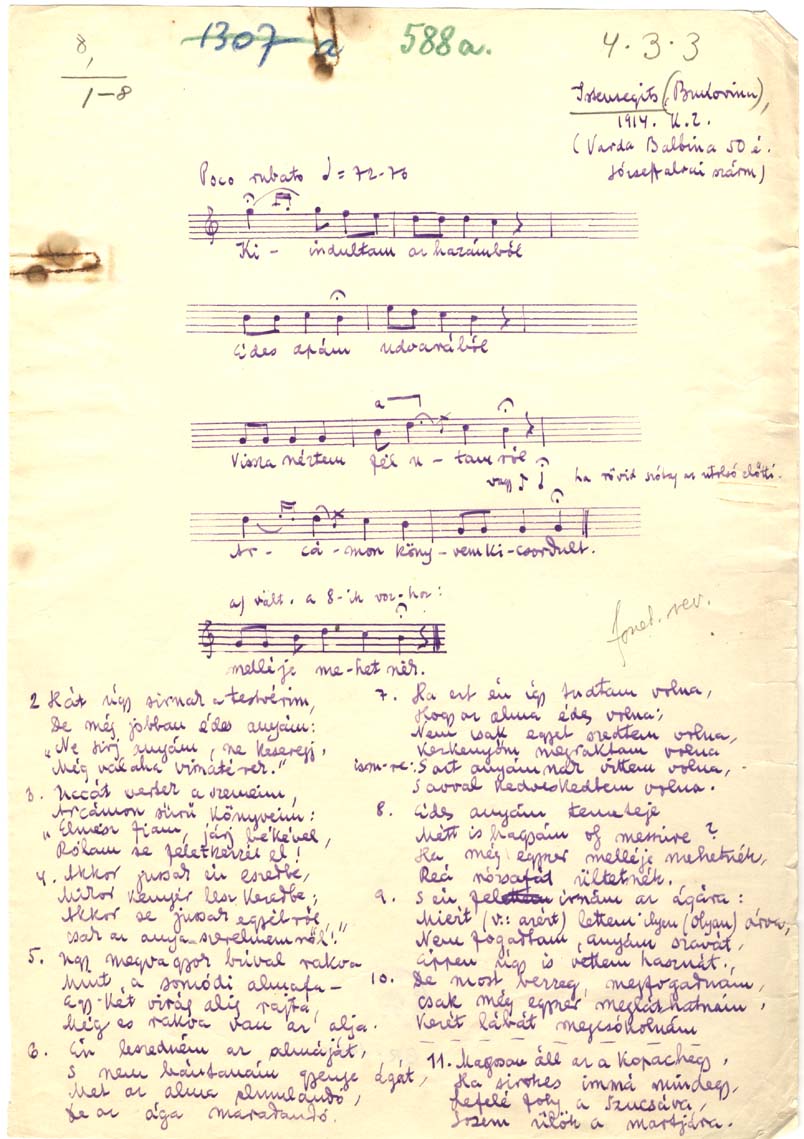 8,
1–8
1307 a
588a.
4·3·3
Istensegits (Bukovina),
1914. K.Z.
(Varda Balbina 50 é.
józseffalvai szárm)
Poco rubato ♩ = 72-76
Ki - indultam az hazámból
édes apám udvarából
a
Vissza néztem fél u - tamról
vagy ha rövid szótag az utolsó előtti.
Ar - cá - mon köny - vem ki - csordult.
a) vált. a 8-ik vsz-hoz:
melléje me-hetnék.
fonet. rev.
2 Hát úgy sirnak a testvérim,
De még jobban édes anyám:
„Ne sirj anyám, ne keseregj,
Még valaha vinátérek."
3. Uccát verték a szemeim,
Arcámon sürü könyveim:
„Elmész fiam, járj békével,
Rólam se feletkezzél el!
4. Akkor jussak én eszedbe,
Mikor kenyér lesz kezedbe,
Akkor se jussak egyébről,
csak az anya-szerelmemről!"
5. Ugy megvagyok búval rakva
Mint a somjódi almafa –
Egy-két virág alig rajta,
Még es rakva van az alja.
6. Én leszedném az almáját,
S nem bántanám gyenge ágát,
Met az alma elmulandó,
De az ága maradandó.
7. Ha ezt én igy tudtam volna,
Hogy az alma édes volna,
Nem csak egyet szedtem volna,
Keszkenyőm megraktam volna
ism-re: S azt anyámnak vittem volna,
S avval kedveskedtem volna.
8. Édes anyám temeteje
Métt is hagyám oj messzire?
Ha még egyszer melléje mehetnék,
Reá rózsafát ültetnék.
9. S én irnám az ágára:
Miért (v.: azért) lettem ilyen (olyan) árva,
Nem fogattam anyám szavát,
Éppen úgy is vettem hasznát.
10. De most bezzeg, megfogadnám,
csak még egyszer megláthatnám,
Kezét lábát megcsókolnám
11. Magosan áll az a Kopachegy,
Ha sirokes immá mindegy,
Lefelé foly a Szucsáva,
S ülök a martjára.